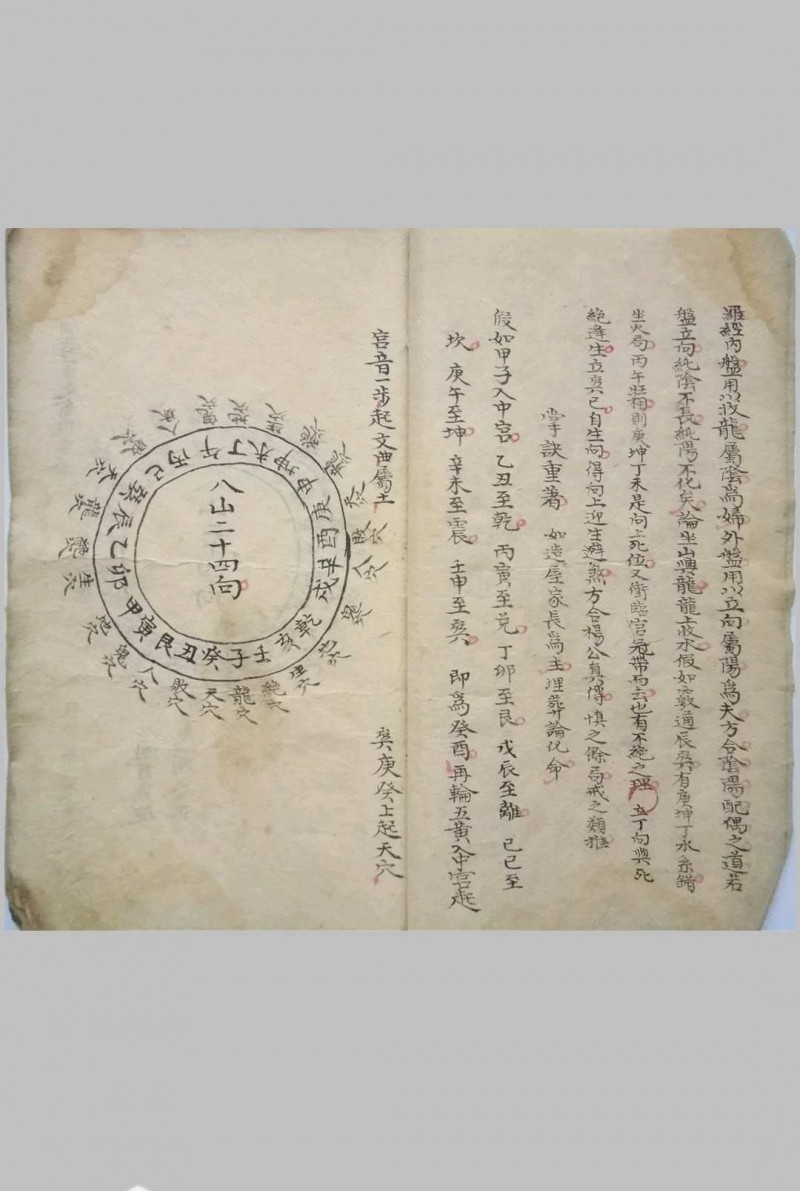 羅經內盤用以收龍屬陰為婦外盤用以立向屬陽為夫方合陰陽配偶之道若
盤立向純陰不長純陽不化矣論坐山與龍龍上收水假如激通辰巽有庚坤丁水系錯
坐火局丙午旺相則庚坤丁未是向上死位又衝臨官冠帶而去也有不施之理立丁向與死
絕逢生立巽巳自生向得向上迎生避煞方合楊公真傳慎之餘局戒之類推
掌訣重著 如造屋家長為主埋葬論化命
假如甲子入中宮 乙丑至乾 丙寅至兌 丁卯至艮 戊辰至離 己巳至
坎 庚午至坤 辛未至震 壬申至巽 即為癸酉再輪五黃入中宮起
宮音一步起文曲屬土
巽庚癸上起天穴
八山二十四向
壬子癸丑艮寅甲卯乙辰巽巳丙午丁未坤申庚酉辛戌乾亥
絕穴
龍穴
天穴
敗穴
人穴
鬼穴
地穴
生穴